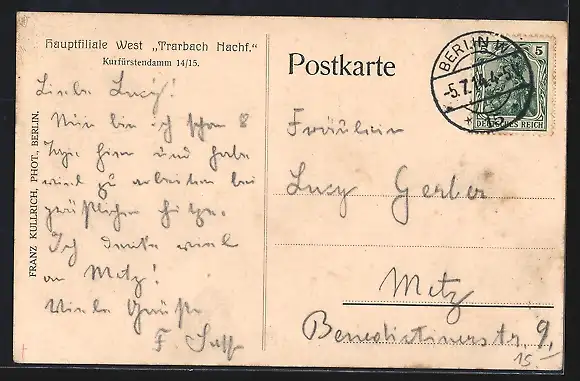 Hauptfiliale West „Trarbach Nachf."
Kurfürstendamm 14/15.
Liebe Lucy!
Nun bin ich schon 8
Tage hier und habe
viel zu arbeiten bei
gräßlicher Hitze.
Ich denke viel
an Metz!
Viele Grüße
F.
FRANZ KULLRICH, PHOT., BERLIN.
Postkarte
BERLIN W
-5.7.14.4-5
* 15
5
DEUTSCHES REICH
Fräulein
Lucy Gerber
Metz
Benedictinerstr. 9,
15.-